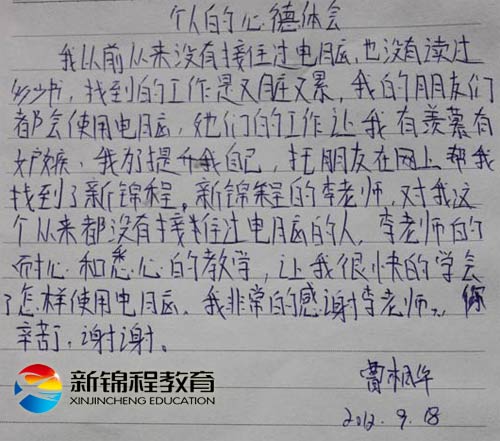 个人的心德体会
我从前从来没有接住过电脑,也没有读过
多少书,找到的工作是又脏又累,我的朋友们
都会使用电脑,她们的工作让我有羡慕有
嫉妒,我为提升我自己,托朋友在网上帮我
找到了新锦程。新锦程的李老师,对我这
个从来都没有接触过电脑的人,李老师的
耐心和悉心的教学,让我很快的学会
了怎样使用电脑。我非常的感谢李老师。你
辛苦了,谢谢。
2012.9.18
新锦程教育
XINJINCHENG EDUCATION